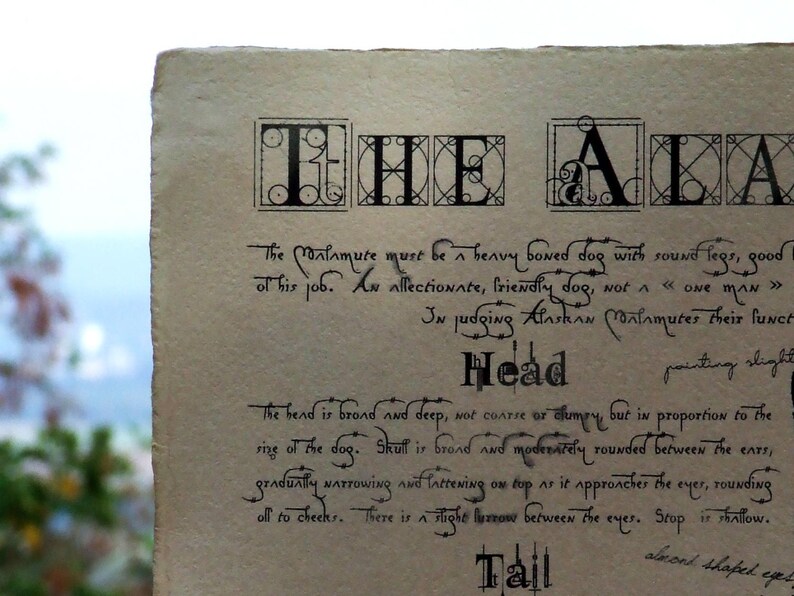 THE ALA
The Malamute must be a heavy boned dog with sound legs, good
of his job. An affectionate, friendly dog, not a « one man »
In judging Alaskan Malamutes their funct
Head
pointing slight
The head is broad and deep, not coarse or clumsy, but in proportion to the
size of the dog. Skull is broad and moderately rounded between the ears,
gradually narrowing and flattening on top as it approaches the eyes, rounding
off to cheeks. There is a slight furrow between the eyes. Stop is shallow.
almond shaped eyes
Tail